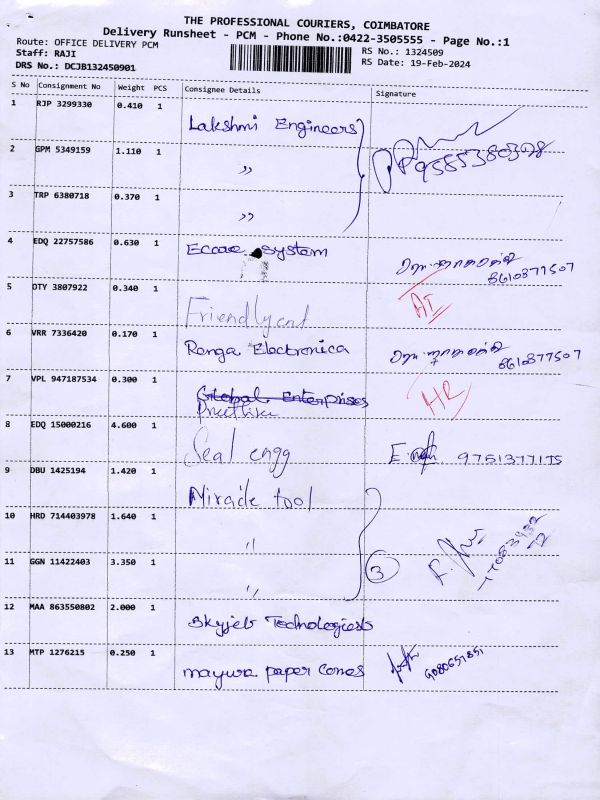 THE PROFESSIONAL COURIERS, COIMBATORE
Delivery Runsheet - PCM - Phone No.:0422-3505555 - Page No.:1
Route: OFFICE DELIVERY PCM
RS No.: 1324509
Staff: RAJI
RS Date: 19-Feb-2024
DRS No.: DCJB132450901
S No Consignment No Weight PCS Consignee Details Signature
1 RJP 3299330 0.410 1 Lakshmi Engineers
2 GPM 5349159 1.110 1 ,, 9585380328
3 TRP 6380718 0.370 1 ,,
4 EDQ 22757586 0.630 1 Eccoe system 8610377507
5 OTY 3807922 0.340 1 Friendly cnt AI
6 VRR 7336420 0.170 1 Renga Electronica 8610377507
7 VPL 947187534 0.300 1 Global Enterprises HR
8 EDQ 15000216 4.600 1 Seal engg 9751377175
9 DBU 1425194 1.420 1 Miracle tool
10 HRD 714403978 1.640 1 ,,
11 GGN 11422403 3.350 1 ,, 3
12 MAA 863550802 2.000 1 Skyjeb Technologies
13 MTP 1276215 0.250 1 mayura paper cones 9080657851